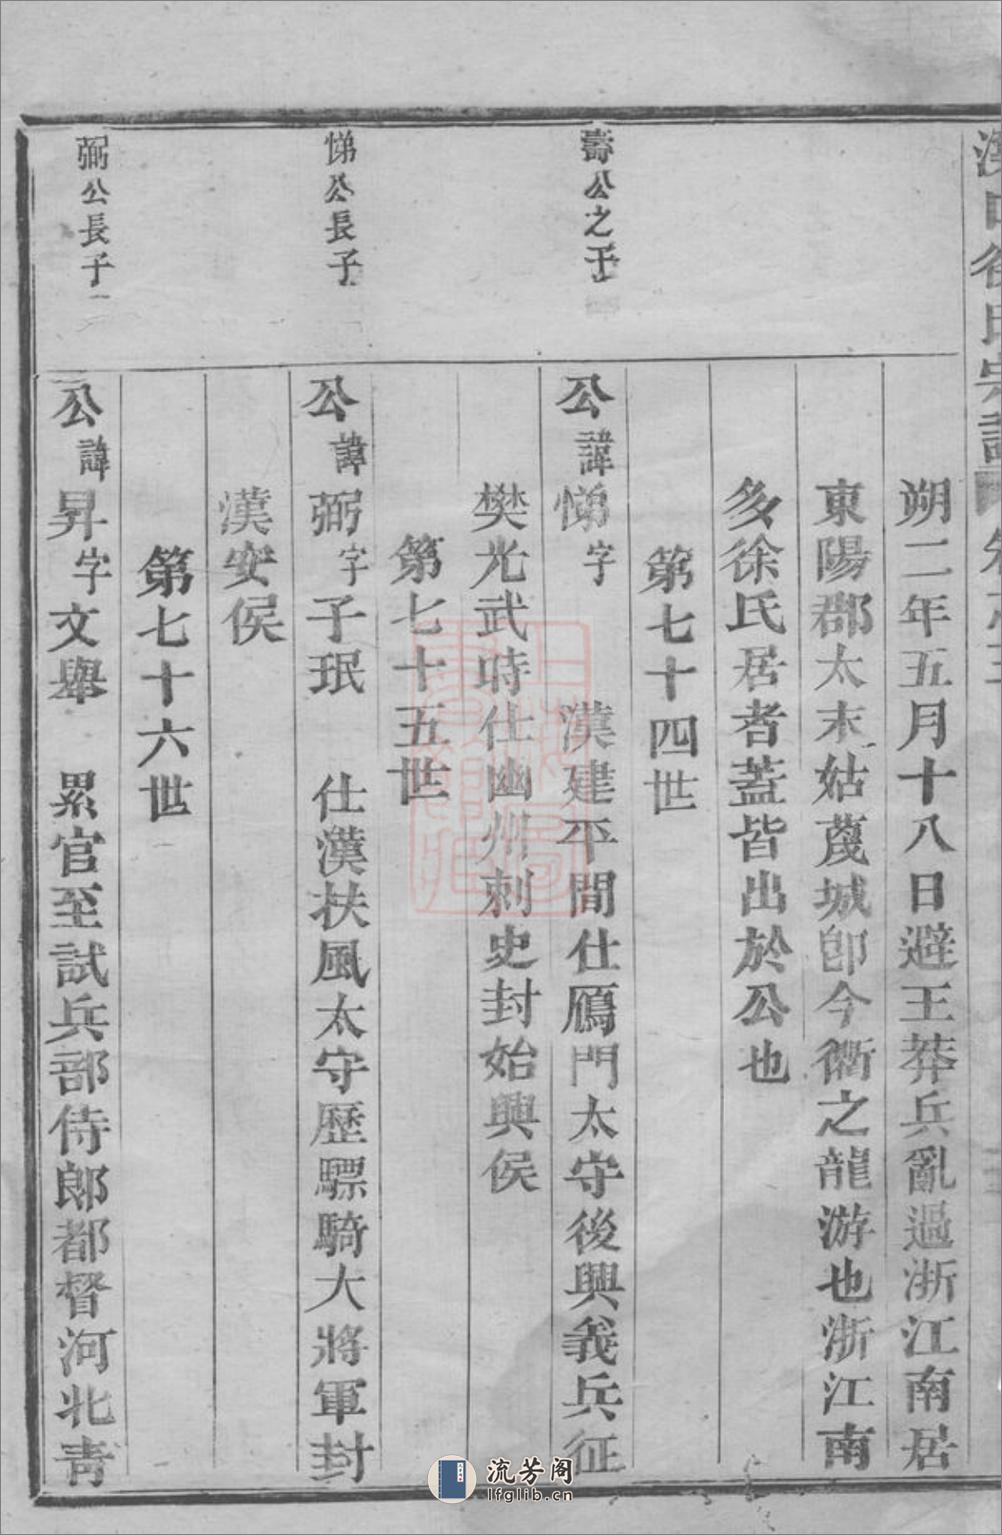 朔二年五月十八日避王莽兵亂過浙江南居
東陽郡太末姑蔑城卽今衢之龍游也浙江南
多徐氏居者蓋皆出於公也
第七十四世
壽公之子
公諱悌字　漢建平間仕鴈門太守後興義兵征
樊光武時仕幽州刺史封始興侯
第七十五世
悌公長子
公諱弼字子珉　仕漢扶風太守歷驃騎大將軍封
漢安侯
第七十六世
弼公長子
公諱昇字文舉　累官至試兵部侍郎都督河北青
流芳阁
lfglib.cn